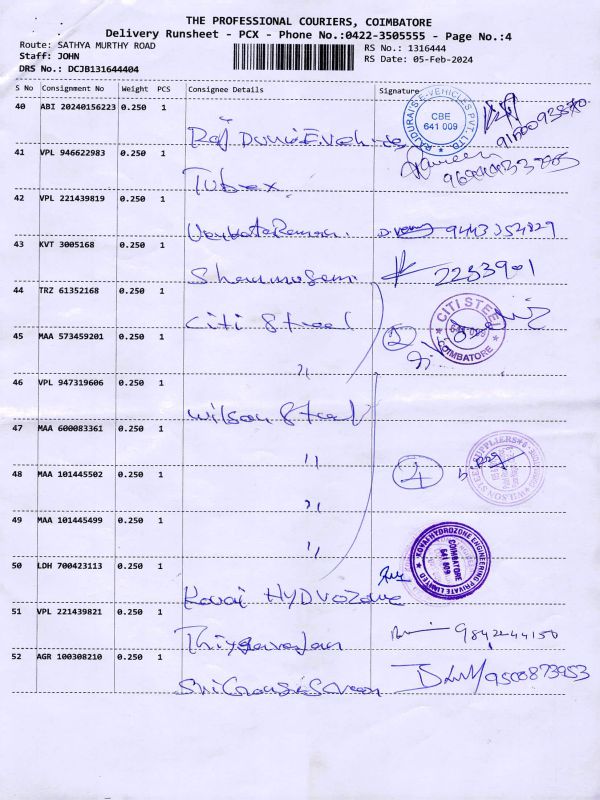 THE PROFESSIONAL COURIERS, COIMBATORE
Delivery Runsheet - PCX - Phone No.:0422-3505555 - Page No.:4
Route: SATHYA MURTHY ROAD
RS No.: 1316444
Staff: JOHN
RS Date: 05-Feb-2024
DRS No.: DCJB131644404
S No Consignment No Weight PCS Consignee Details Signature
40 ABI 20240156223 0.250 1
RAJDURAI'S E-VEHICLES PVT. LTD. CBE 641 009
41 VPL 946622983 0.250 1
Tubex
42 VPL 221439819 0.250 1
VenkataRaman. 9443354829
43 KVT 3005168 0.250 1
2233901
44 TRZ 61352168 0.250 1
Citi Steel
CITI STEEL 641 009 COIMBATORE
45 MAA 573459201 0.250 1
2
"
46 VPL 947319606 0.250 1
Wilson Steel
47 MAA 600083361 0.250 1
"
4
WILSON STEEL SUPPLIERS
48 MAA 101445502 0.250 1
"
49 MAA 101445499 0.250 1
"
50 LDH 700423113 0.250 1
KOVAI HYDROZONE ENGINEERING PRIVATE LIMITED COIMBATORE 641 009
Kovai HYDVOZone
51 VPL 221439821 0.250 1
9842244150
52 AGR 100308210 0.250 1
9500873953